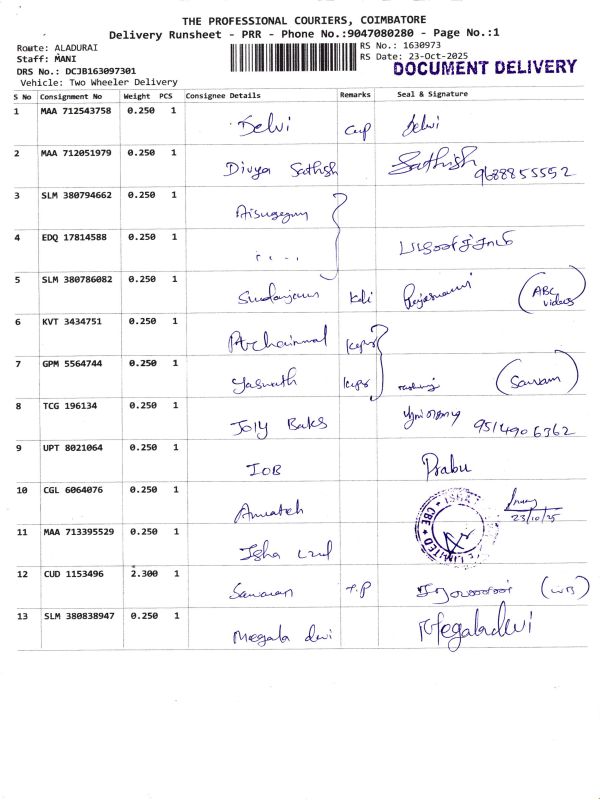 THE PROFESSIONAL COURIERS, COIMBATORE
Delivery Runsheet - PRR - Phone No.:9047080280 - Page No.:1
Route: ALADURAI
RS No.: 1630973
Staff: MANI
RS Date: 23-Oct-2025
DRS No.: DCJB163097301
DOCUMENT DELIVERY
Vehicle: Two Wheeler Delivery
S No Consignment No Weight PCS Consignee Details Remarks Seal & Signature
1 MAA 712543758 0.250 1 Selvi Selvi
2 MAA 712051979 0.250 1 Divya Sathish Sathish 9688855552
3 SLM 380794662 0.250 1
4 EDQ 17814588 0.250 1
5 SLM 380786082 0.250 1 (ABC videos)
6 KVT 3434751 0.250 1
7 GPM 5564744 0.250 1
8 TCG 196134 0.250 1 Joly Baks 9514906362
9 UPT 8021064 0.250 1 IOB Prabu
10 CGL 6064076 0.250 1 23/10/25
11 MAA 713395529 0.250 1 Isha
CBE LIMITED
12 CUD 1153496 2.300 1 T.P
13 SLM 380838947 0.250 1 Meegala devi Megaladevi